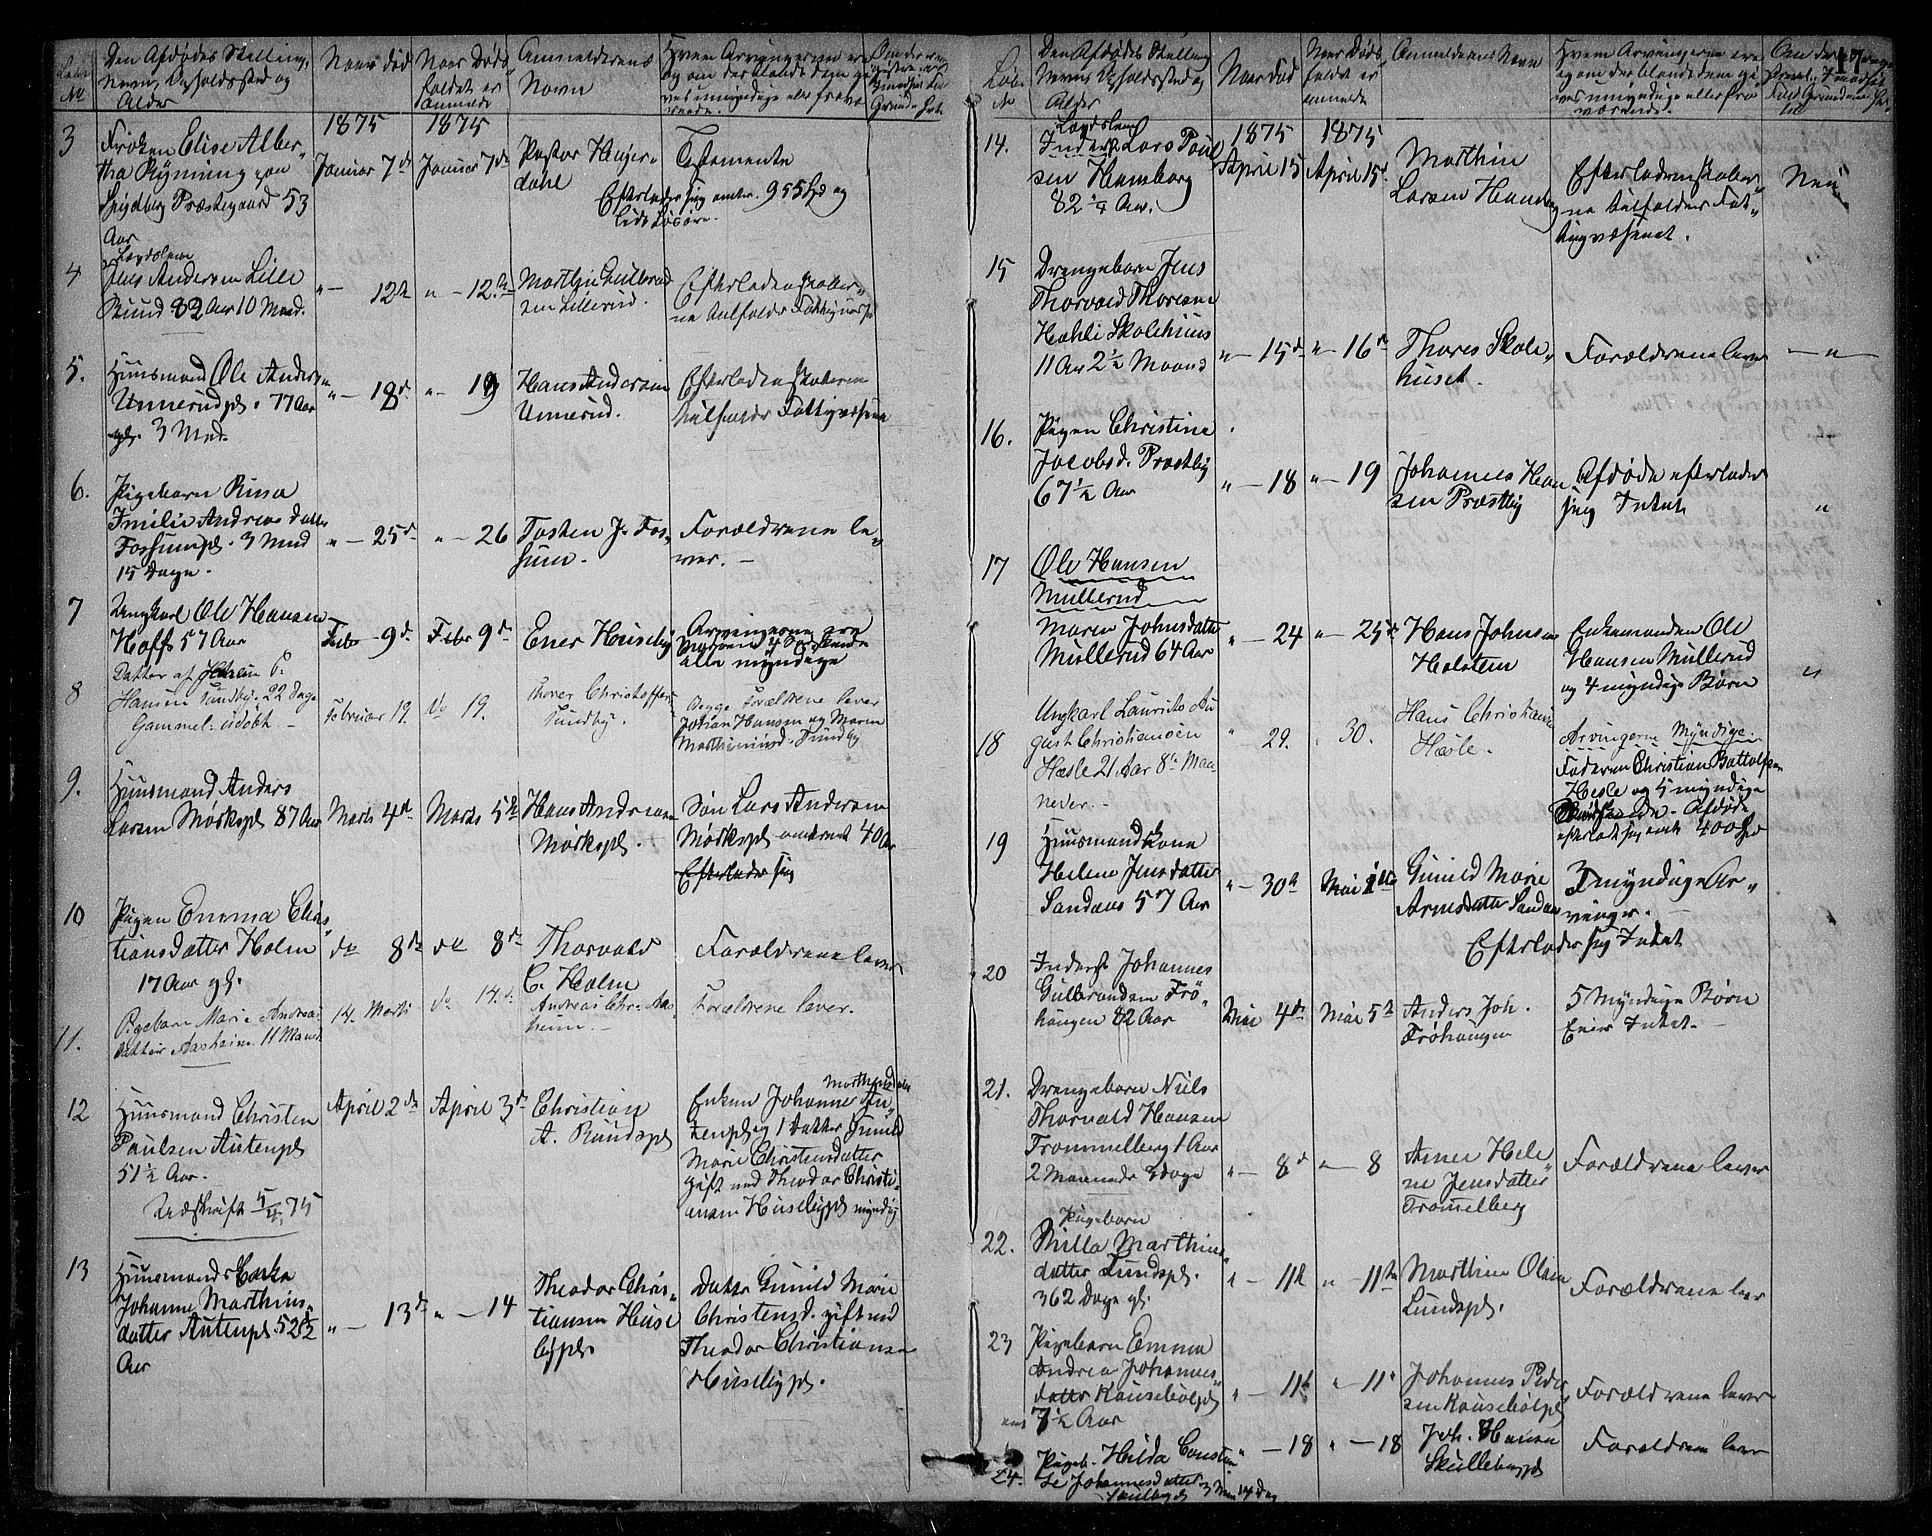 Løbe No
Den Afdødes Stilling,
Navn, Opholdssted og
Alder
Naar død
Naar Døds
faldet er
anmeldt
Anmelderens
Navn
Hvem Arvingerne ere
og om der blandt dem gi
ves umyndige eller fravæ
rende.
3
Frøken Elise Alber
tha Rynning paa
Spydberg Præstegaard 53
Aar
1875
Januar 7de
1875
Januar 7de
Pastor Heyer
dahl
Testamente
Efterlader sig omtr. 955 Spd og
lidt Løsøre.
4
Lægdslem
Andersen Lille
Rund 82 Aar 10 Maad.
" — 12te
" — 12te
Marthin Gulbrand
sen Lillerud.
Efterladenskaber
ne tilfalde Fattigvæs
5.
Huusmand Ole Anders
Unnerudpl. 77 Aar
3 Mnd.
" — 18de
" — 19
Hans Andersen
Unnerud.
Efterladenskaberne
tilfalder Fattigvæsene
6.
Pigebarn Rina
Emilie Andreas datter
Fossumpl. 3 Mnd
15 Dage.
" — 25de
" — 26
Torsten J. Fos
sum.
Forældrene le
ver. —
7
Ungkarl Ole Hansen
Hoff 57 Aar
Febr 9de
Febr 9de
Ener Huseby
Arvingerne ere
Søskende
alle myndige
8
Datter af Johan P.
Hansen Sundby. 22 Dage
Gammel. udøbt —
Februar 19.
do 19.
Thorer Christoffer
Sundby.
Begge Forældrene lever
Johan Hansen og Maren
Marthinusd. Sundby
9.
Huusmand Anders
Larsen Mørkspl 87 Aar
Marts 4de
Marts 5te
Hans Andersen
Mørkspl.
Søn Lars Andersen
Mørkspl omtrent 40 Aar
Efterlader sig
10
Pigen Emma Chris
tiansdatter Holm
17 Aar gl.
do 8de
do 8de
Thorvald
C. Holm
Forældrene lever
11.
Pigebarn Marie Andreas
datter Aasheim 11 Maan
14. Marts
do 14.
Andreas Chr. Aas
heim. —
Forældrene lever.
12
Huusmand Christen
Paulsen Autenpl
51½ Aar.
Udskrift 5/4 75
April 2den
April 3de
Christian
A. Rundspl
Enken Johanne Marthinsdatter Au
tenpl og 1 Datter Gunild
Marie Christensdatter
gift med Theodor Christi
ansen Husebypl myndig
13
Huusmands Enke
Johanne Marthins
datter Autenpl. 52½
Aar
" — 13de
" — 14
Theodor Chris
tiansen Huse
bypl.
Datter Gunild Marie
Christensd. gift med
Theodor Christiansen
Husebypl.
17
Løbe
No
Den Afdødes Stilling
Navn, Opholdssted og
Alder
Naar død
Naar Døds
faldet er
anmeldt
Anmelderens Navn
Hvem Arvingerne ere
og om der blandt dem gi
ves umyndige eller fra
værende.
14.
Lægdslem
Inderst Lars Poul
sen Hamborg
82 ¼ Aar.
1875
April 15
1875
April 15de
Marthin
Larsen Hamborg
Efterladenskaber
ne tilfalder Fat
tigvæsenet.
Nei
15
Drengebarn Jens
Thorvald Thoresen
Hæhli Skolehuus
11 Aar 2½ Maaned
" — 15de
" — 16de
Thores Skole
huset.
Forældrene lever
— " —
16.
Pigen Christine
Jacobsd. Præstby
67½ Aar
" — 18
" — 19
Johannes Han
sen Præstby
Afdøde efterlader
sig Intet
"
17
Ole Hansen
Mullerud
Maren Johnsdatter
Mullerud 64 Aar
" — 24
" — 25de
Hans Johnsen
Holstein
Enkemanden Ole
Hansen Mullerud
og 4 myndige Børn
"
18
Ungkarl Laurits Au
gust Christiansen
Hæsle 21 Aar 8 Maa
neder. —
" — 29.
" 30.
Hans Christians
Hæsle.
Arvingerne Myndige
Faderen Christian Battolfsen
Hesle og 5 myndige
Sødskende. Afdøde
efterlod sig omtr 400 Spd
19
Huusmandskone
Helene Jensdatter
Sandaas 57 Aar
" — 30te
Mai 1ste
Gunild Marie
Arnesdatter Sandaas
3 myndige Ar
vinger.
Efterlader sig Intet
20
Inderst Johannes
Gulbrandsen Frø
haugen 82 Aar
Mai 4de
Mai 5te
Anders Joh.
Frøhaugen
5 Myndige Børn
Eier Intet. —
21.
Drengebarn Niels
Thorvald Hansen
Trommelberg 1 Aar
2 Maaneder 3 dage
" — 8de
" — 8
Anne Hele
ne Jensdatter
Tromelberg
Forældrene lever
22.
Pigebarn
Milla Marthins
datter Lundspl.
362 Dage gl.
" — 11te
" — 11te
Marthin Olsen
Lundspl.
Forældrene lever
23
Pigebarn Emma
Andrea Johannes
datter Knusebølpl
7½ Aar
" — 11te
" — 11te
Johannes Peder
sen Knusebølpl
Forældrene lever
24.
Pigeb. Hilda Constan
se Johannesdatter 3 Mnd 14 Dag
" — 18
" — 18
Joh. Hansen
Skullebypl
Forældrene lever